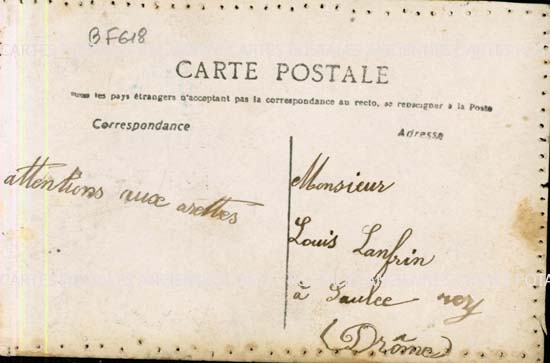 BF618
CARTE POSTALE
Tous les pays étrangers n'acceptant pas la correspondance au recto, se renseigner à la Poste
Correspondance
Adresse
attentions aux arettes
Monsieur
Louis Lanfrin
à Saulce
(Drôme)